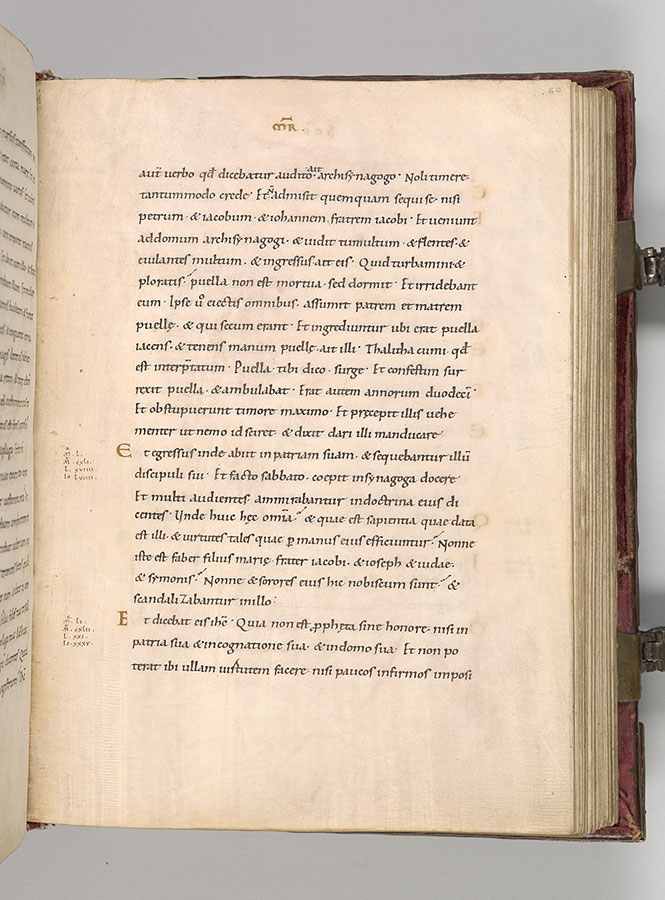 60
MR
aut̄ verbo qđ dicebatur audito ait archisynagogo · Noli timere ·
tantummodo crede · Et n̄ admisit quemquam sequi se · nisi
petrum · & iacobum · & iohannem fratrem iacobi · Et veniunt
ad domum archisynagogi · & uidit tumultum · & flentes · &
eiulantes multum · & ingressus ait eis · Quid turbamini · &
ploratis · puella non est mortua · sed dormit · Et irridebant
eum · Ipse ū eiectis omnibus · assumit patrem et matrem
puellę · & qui secum erant · Et ingrediuntur ubi erat puella
iacens · & tenens manum puellę · ait illi · Thalitha cumi · qđ
est interp̄tatum · Puella · tibi dico · surge · Et confestim sur
rexit puella · & ambulabat · Erat autem annorum duodeci ̄·
Et obstupuerunt timore maximo · Et precepit illis uehe
menter ut nemo id sciret · & dixit dari illi manducare
Et egressus inde abiit in patriam suam · & sequebantur illū
discipuli sui · Et facto sabbato · coepit in synagoga docere
Et multi audientes · ammirabantur in doctrina eius di
centes · Unde huic hęc om̄ia · & quae est sapientia quae data
est illi · & uirtutes tales quae ꝑ manus eius efficiuntur · Nonne
iste est faber filius marię · frater iacobi · & ioseph & iudae ·
& symonis · Nonne & sorores eius hic nobiscum sunt · &
scandalizabantur in illo ·
Et dicebat eis ih̄c · Quia non est ꝓpheta sine honore · nisi in
patria sua & in cognatione sua · & in domo sua · Et non po
terat ibi ullam uirtutem facere · nisi paucos infirmos imposi
m̄. L.
L. xviiii.
io. Lviiii.
m̄. Li.
L. xxi.
io. xxxv.